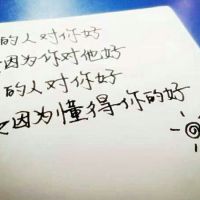 的人对你好
因为你对他好
的人对你好
因为懂得你的好